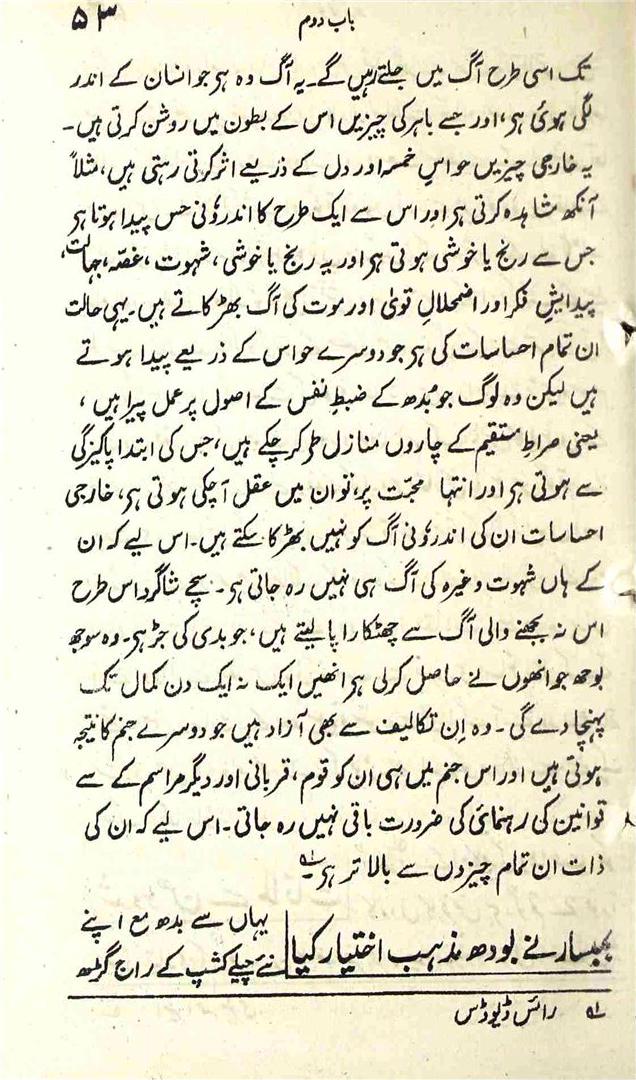 باب دوم
۵۳
تک اسی طرح آگ میں جلتے رہیں گے۔ یہ آگ وہ ہر جو انسان کے اندر
لگی ہوئی ہر، اور جسے باہر کی چیزیں اس کے بطون میں روشن کرتی ہیں۔
یہ خارجی چیزیں حواسِ خمسہ اور دل کے ذریعے اثر کرتی رہتی ہیں، مثلاً
آنکھ مشاہدہ کرتی ہر اور اس سے ایک طرح کا اندرؤنی حس پیدا ہوتا ہر
جس سے رنج یا خوشی ہوتی ہر اور یہ رنج یا خوشی، شہوت، غصّہ، جہالت،
پیدایشِ فکر اور اضمحلالِ قویٰ اور موت کی آگ بھڑکاتے ہیں۔ یہی حالت
ان تمام احساسات کی ہر جو دوسرے حواس کے ذریعے پیدا ہوتے
ہیں لیکن وہ لوگ جو بُدھ کے ضبطِ نفس کے اصول پر عمل پیرا ہیں،
یعنی صراطِ مستقیم کے چاروں منازل طر کر چکے ہیں، جس کی ابتدا پاکیزگی
سے ہوتی ہر اور انتہا محبّت پر، تو ان میں عقل آچکی ہوتی ہر، خارجی
احساسات ان کی اندرؤنی آگ کو نہیں بھڑکا سکتے ہیں۔ اس لیے کہ ان
کے ہاں شہوت وغیرہ کی آگ ہی نہیں رہ جاتی ہر۔ سچے شاگرد اس طرح
اس نہ بجھنے والی آگ سے چھٹکارا پالیتے ہیں، جو بدی کی جڑ ہر۔ وہ سوجھ
بوجھ جو انھوں نے حاصل کرلی ہر انھیں ایک نہ ایک دن کمال تک
پہنچا دے گی۔ وہ اِن تکالیف سے بھی آزاد ہیں جو دوسرے جنم کا نتیجہ
ہوتی ہیں اور اس جنم میں ہی ان کو قوم، قربانی اور دیگر مراسم کے سے
قوانین کی رہنمائی کی ضرورت باقی نہیں رہ جاتی۔ اس لیے کہ ان کی
ذات ان تمام چیزوں سے بالا تر ہر۔ ؎۱
بمبسار نے بودھ مذہب اختیار کیا
یہاں سے بدھ مع اپنے
نئے چیلے کشپ کے راج گڑھ
؎۱ رائس ڈیوڈس